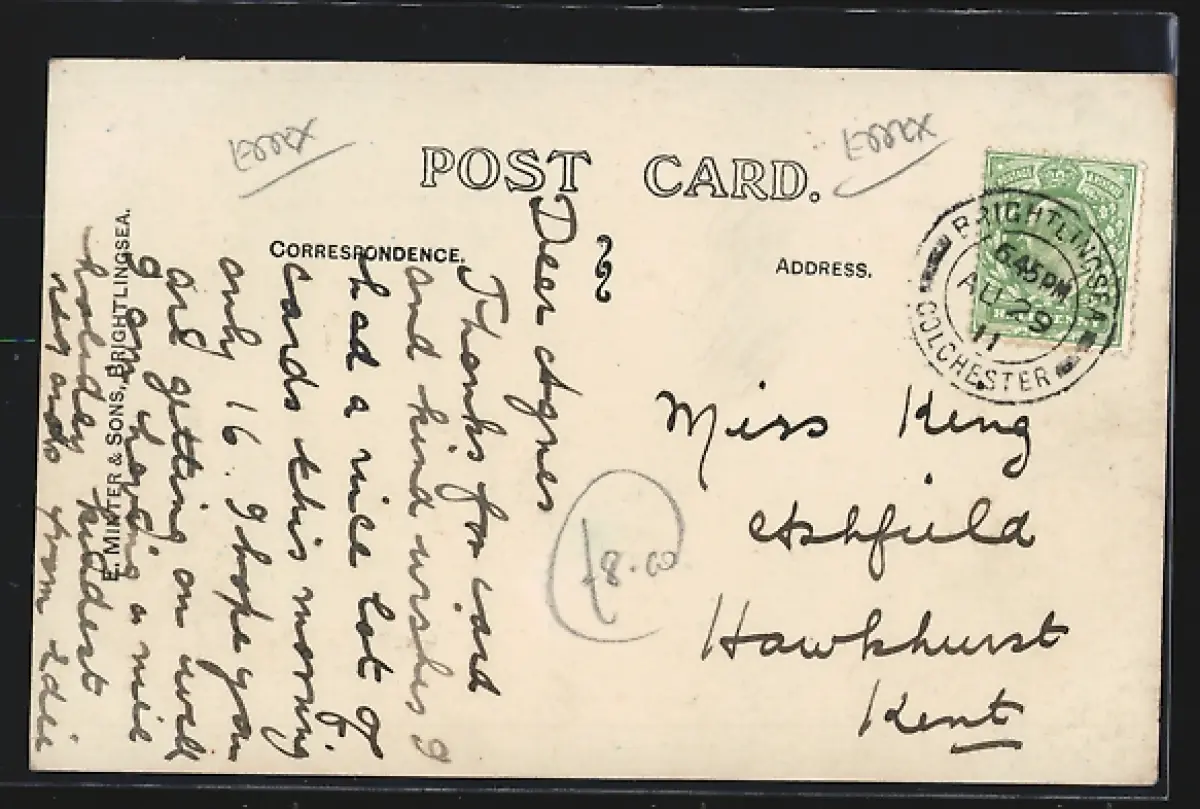 Essex
Essex
POST CARD.
CORRESPONDENCE.
ADDRESS.
BRIGHTLINGSEA
6.45 PM
AU 29
11
COLCHESTER
HALFPENNY
E. MINTER & SONS, BRIGHTLINGSEA.
Dear Agnes
Thanks for card
and kind wishes I
had a nice lot of
cards this morning
only 16. I hope you
are getting on well
I am having a nice
holiday kindest
from Edie
Miss King
Ashfield
Hawkhurst
Kent
£8.00